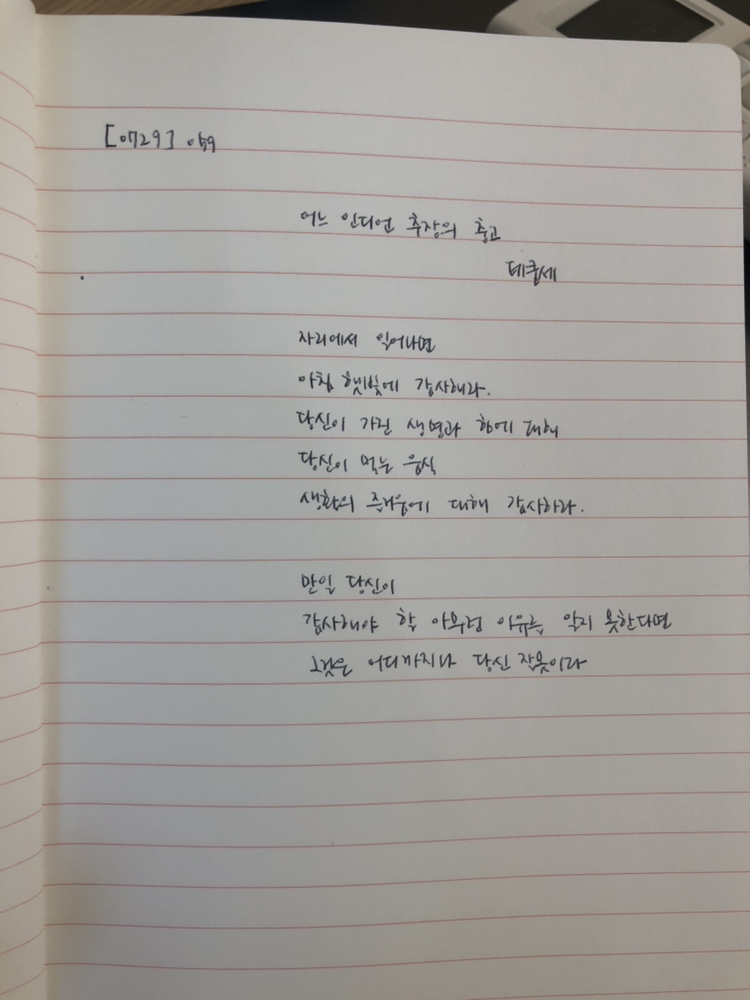 [0729]
어느 인디언 추장의 충고
테쿰세
자리에서 일어나면
아침 햇빛에 감사해라.
당신이 가진 생명과 힘에 대해
당신이 먹는 음식
생활의 즐거움에 대해 감사하라.
만일 당신이
감사해야 할 아무런 이유를 알지 못한다면
그것은 어디까지나 당신 잘못이라